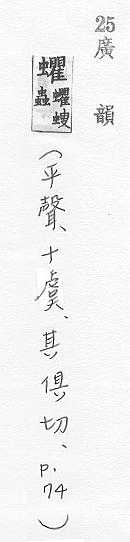 25 廣韻
蠷 蠷螋蟲
(平聲、十虞、其俱切、p.74)